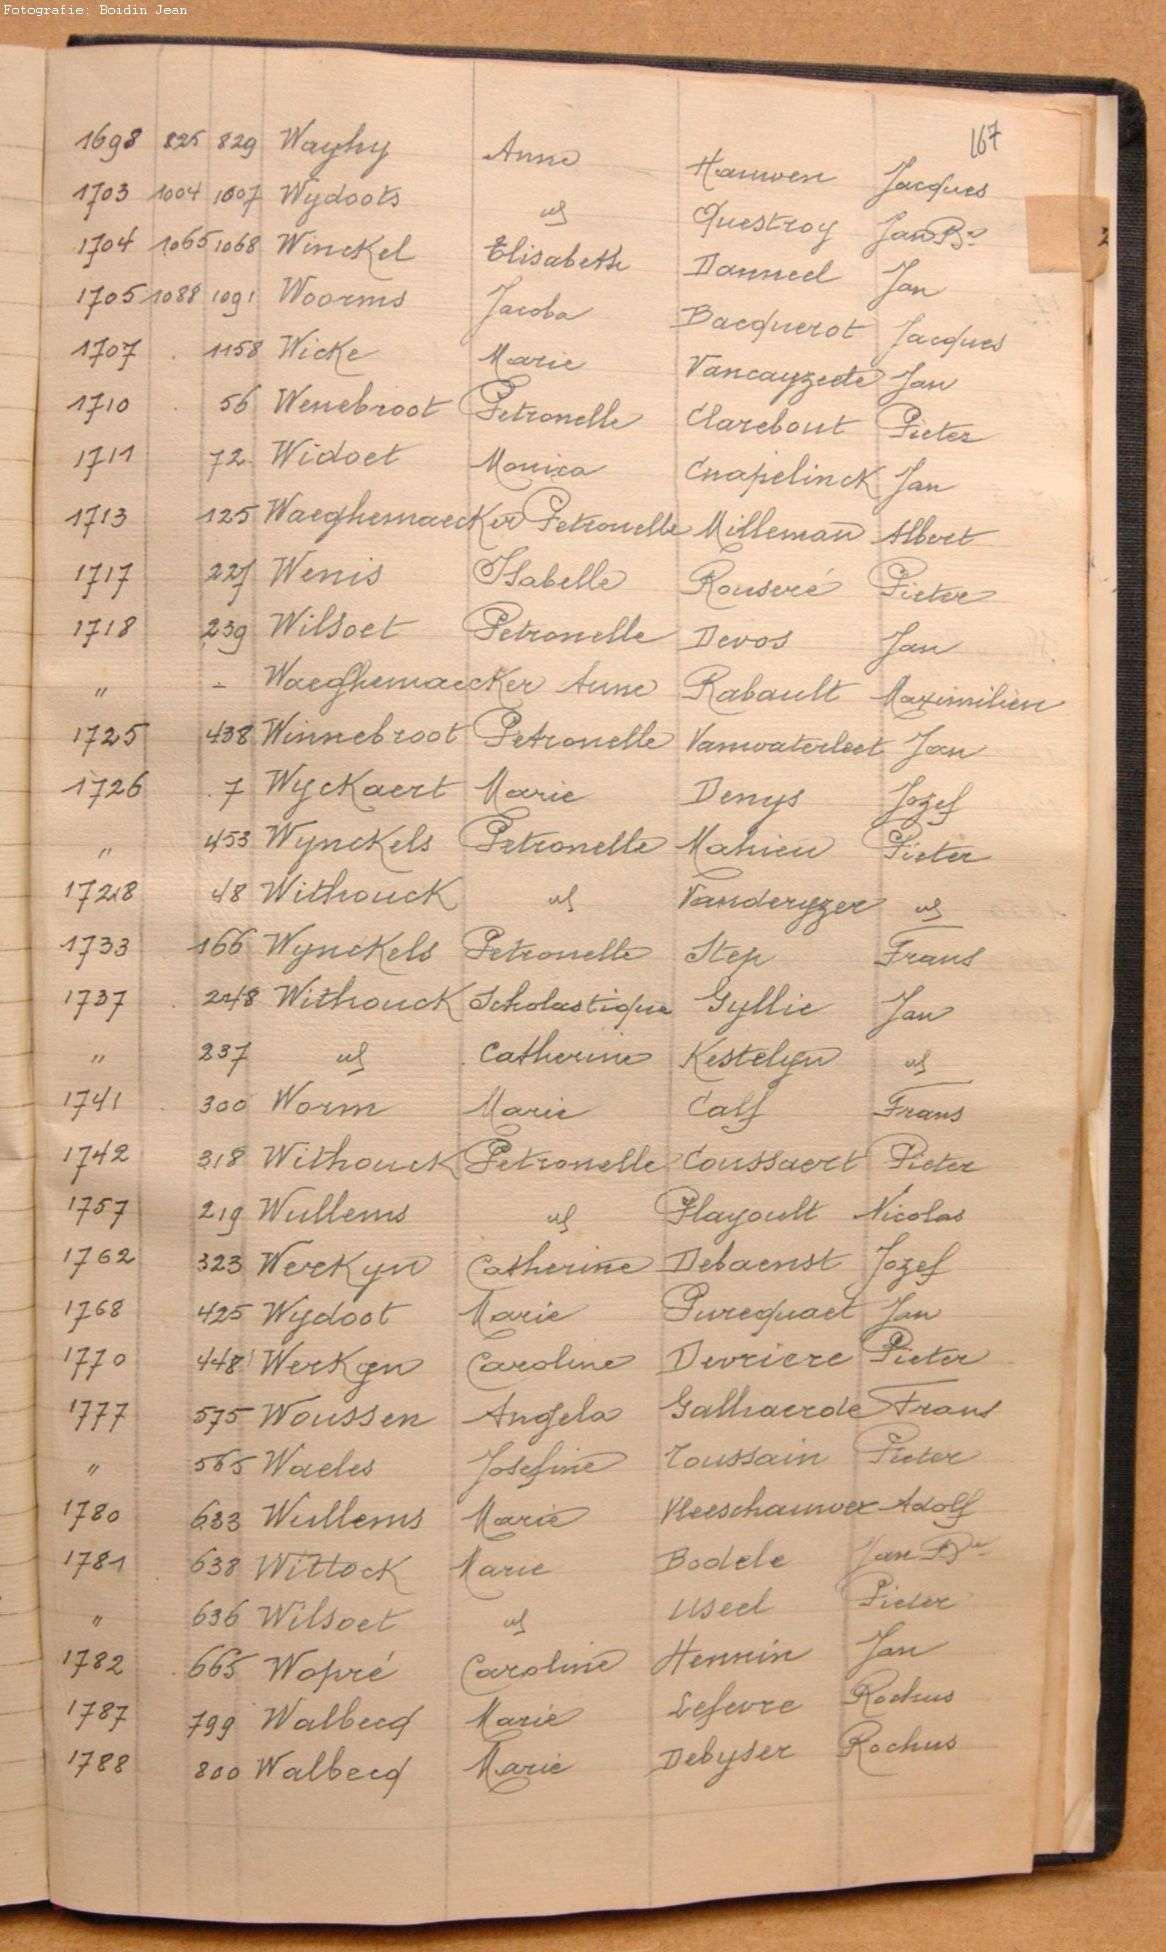 Fotografie: Boidin Jean
167
1698 825 829 Wayhy Anne Hauwen Jacques
1703 1004 1007 Wydoots id Questroy Jan Bte
1704 1065 1068 Winckel Elisabeth Danneel Jan
1705 1088 1091 Woorms Jacoba Bacquerot Jacques
1707 . 1158 Wicke Marie Vancayzeele Jan
1710 . 56 Wenebroot Petronelle Clarebout Pieter
1711 72 Widoet Monica Cnapelinck Jan
1713 125 Waeghemaecker Petronelle Milleman Albert
1717 227 Wenis Isabelle Rouseré Pieter
1718 239 Wilsoet Petronelle Devos Jan
" - Waeghemaecker Anne Rabault Maximilien
1725 438 Winnebroot Petronelle Vanwaterleet Jan
1726 . 7 Wyckaert Marie Denys Jozef
" 453 Wynckels Petronelle Mahieu Pieter
1728 48 Withouck id Vanderyzer id
1733 166 Wynckels Petronelle Step Frans
1737 248 Withouck Scholastique Gyllie Jan
" 237 id Catherine Kestelyn id
1741 300 Worm Marie Calf Frans
1742 318 Withouck Petronelle Coussaert Pieter
1757 219 Wullems id Playoult Nicolas
1762 323 Werkyn Catherine Debaenst Jozef
1768 425 Wydoot Marie Purequaet Jan
1770 448 Werkyn Caroline Devriere Pieter
1777 575 Woussen Angela Galhaerde Frans
" 565 Waeles Josefine Toussain Pieter
1780 633 Wullems Marie Vleeschauwer Adolf
1781 638 Wittock Marie Bodele Jan Bte
" 636 Wilsoet id Useel Pieter
1782 665 Wopré Caroline Hennin Jan
1787 799 Walbecq Marie Lefevre Rochus
1788 800 Walbecq Marie Debyser Rochus